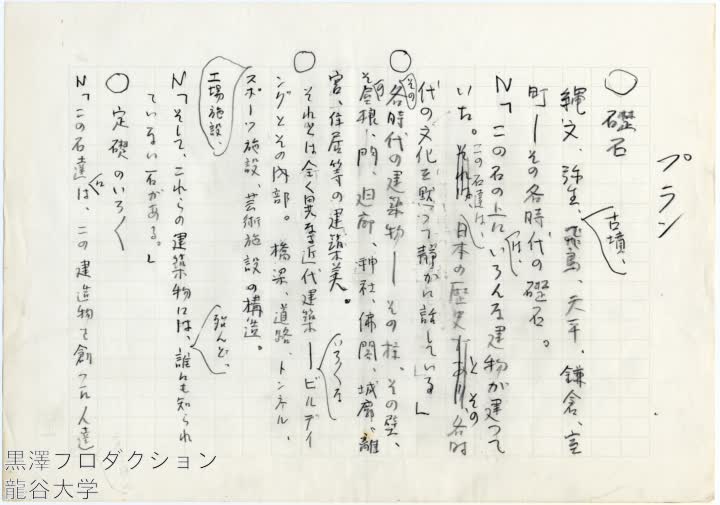 プラン
○ 礎石
縄文、弥生、古墳、飛鳥、天平、鎌倉、室
町―その各時代の礎石。
N「この石の上に、いろんな建物が建って
いた。この石達は、日本の歴史とその各時
代の文化を黙って静かに話している」
○ その各時代の建築物―その柱、その壁、
その屋根、門、廻廊、神社、佛閣、城廓、離
宮、住居等の建築美。
○ それとは全く異る近代建築―いろ〱なビルディ
ングとその内部。橋梁、道路、トンネル、
工場施設、スポーツ施設、芸術施設の構造。
N「そして、これらの建築物には、殆んど、誰にも知られ
ていない石がある。」
○ 定礎のいろ〱
N「この石達は、この建造物を創った人達
黒澤プロダクション
龍谷大学